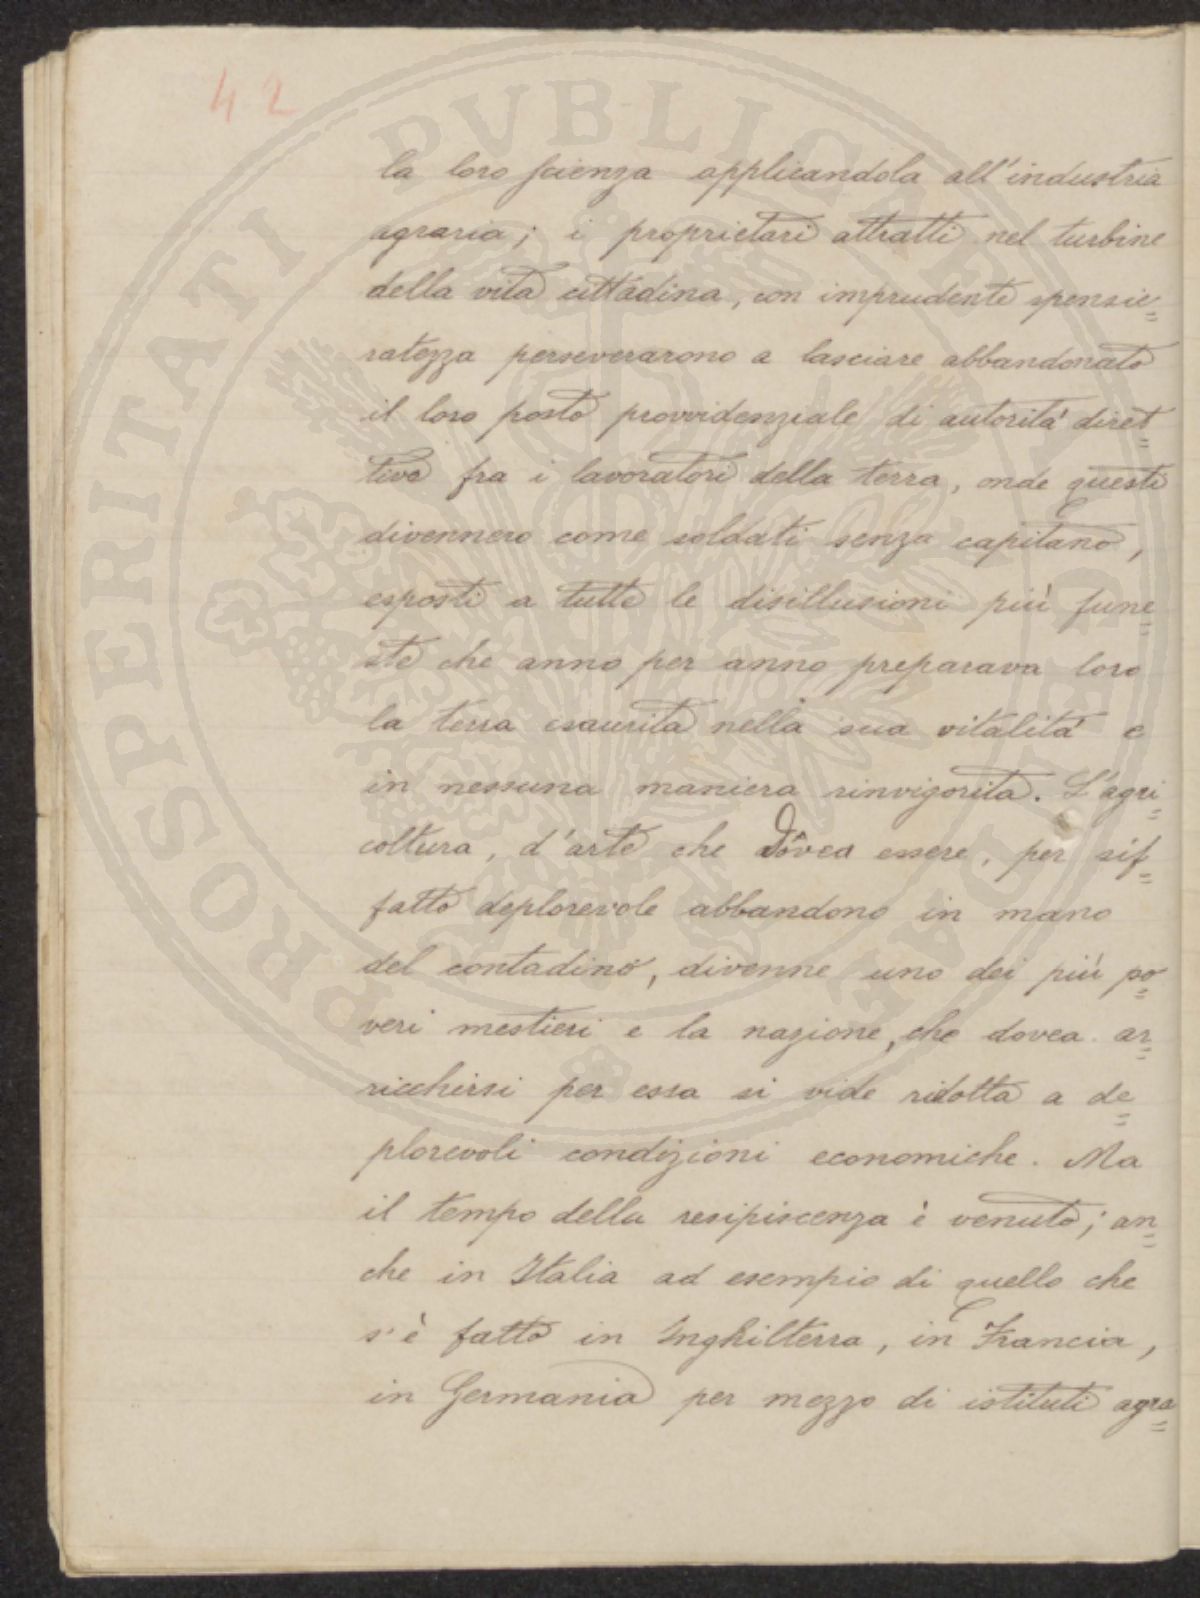 42
PROSPERITATI PVBLICAE AVGENDAE
la loro scienza applicandola all'industria
agraria; i proprietari attratti nel turbine
della vita cittadina, con imprudente spensie=
ratezza perseverarono a lasciare abbandonato
il loro posto provvidenziale di autorità diret=
tive fra i lavoratori della terra, onde questi
divennero come soldati senza capitano,
esposti a tutte le disillusioni più fune=
ste che anno per anno preparava loro
la terra esaurita nella sua vitalità e
in nessuna maniera rinvigorita. L'agri=
coltura, d'arte che dovea essere, per sif=
fatto deplorevole abbandono in mano
del contadino, divenne uno dei più po=
veri mestieri e la nazione, che dovea ar=
ricchirsi per essa si vide ridotta a de=
plorevoli condizioni economiche. Ma
il tempo della resipiscenza è venuto; an=
che in Italia ad esempio di quello che
s'è fatto in Inghilterra, in Francia,
in Germania per mezzo di istituti agra=